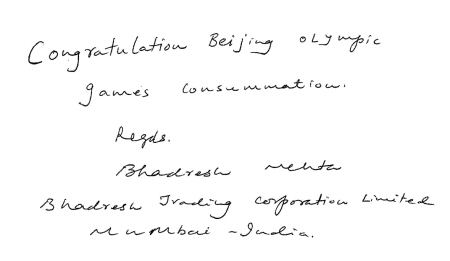 Congratulation Beijing olympic
games consummation.
Regds.
Bhadresh mehta
Bhadresh Trading corporation Limited
Mumbai - India.